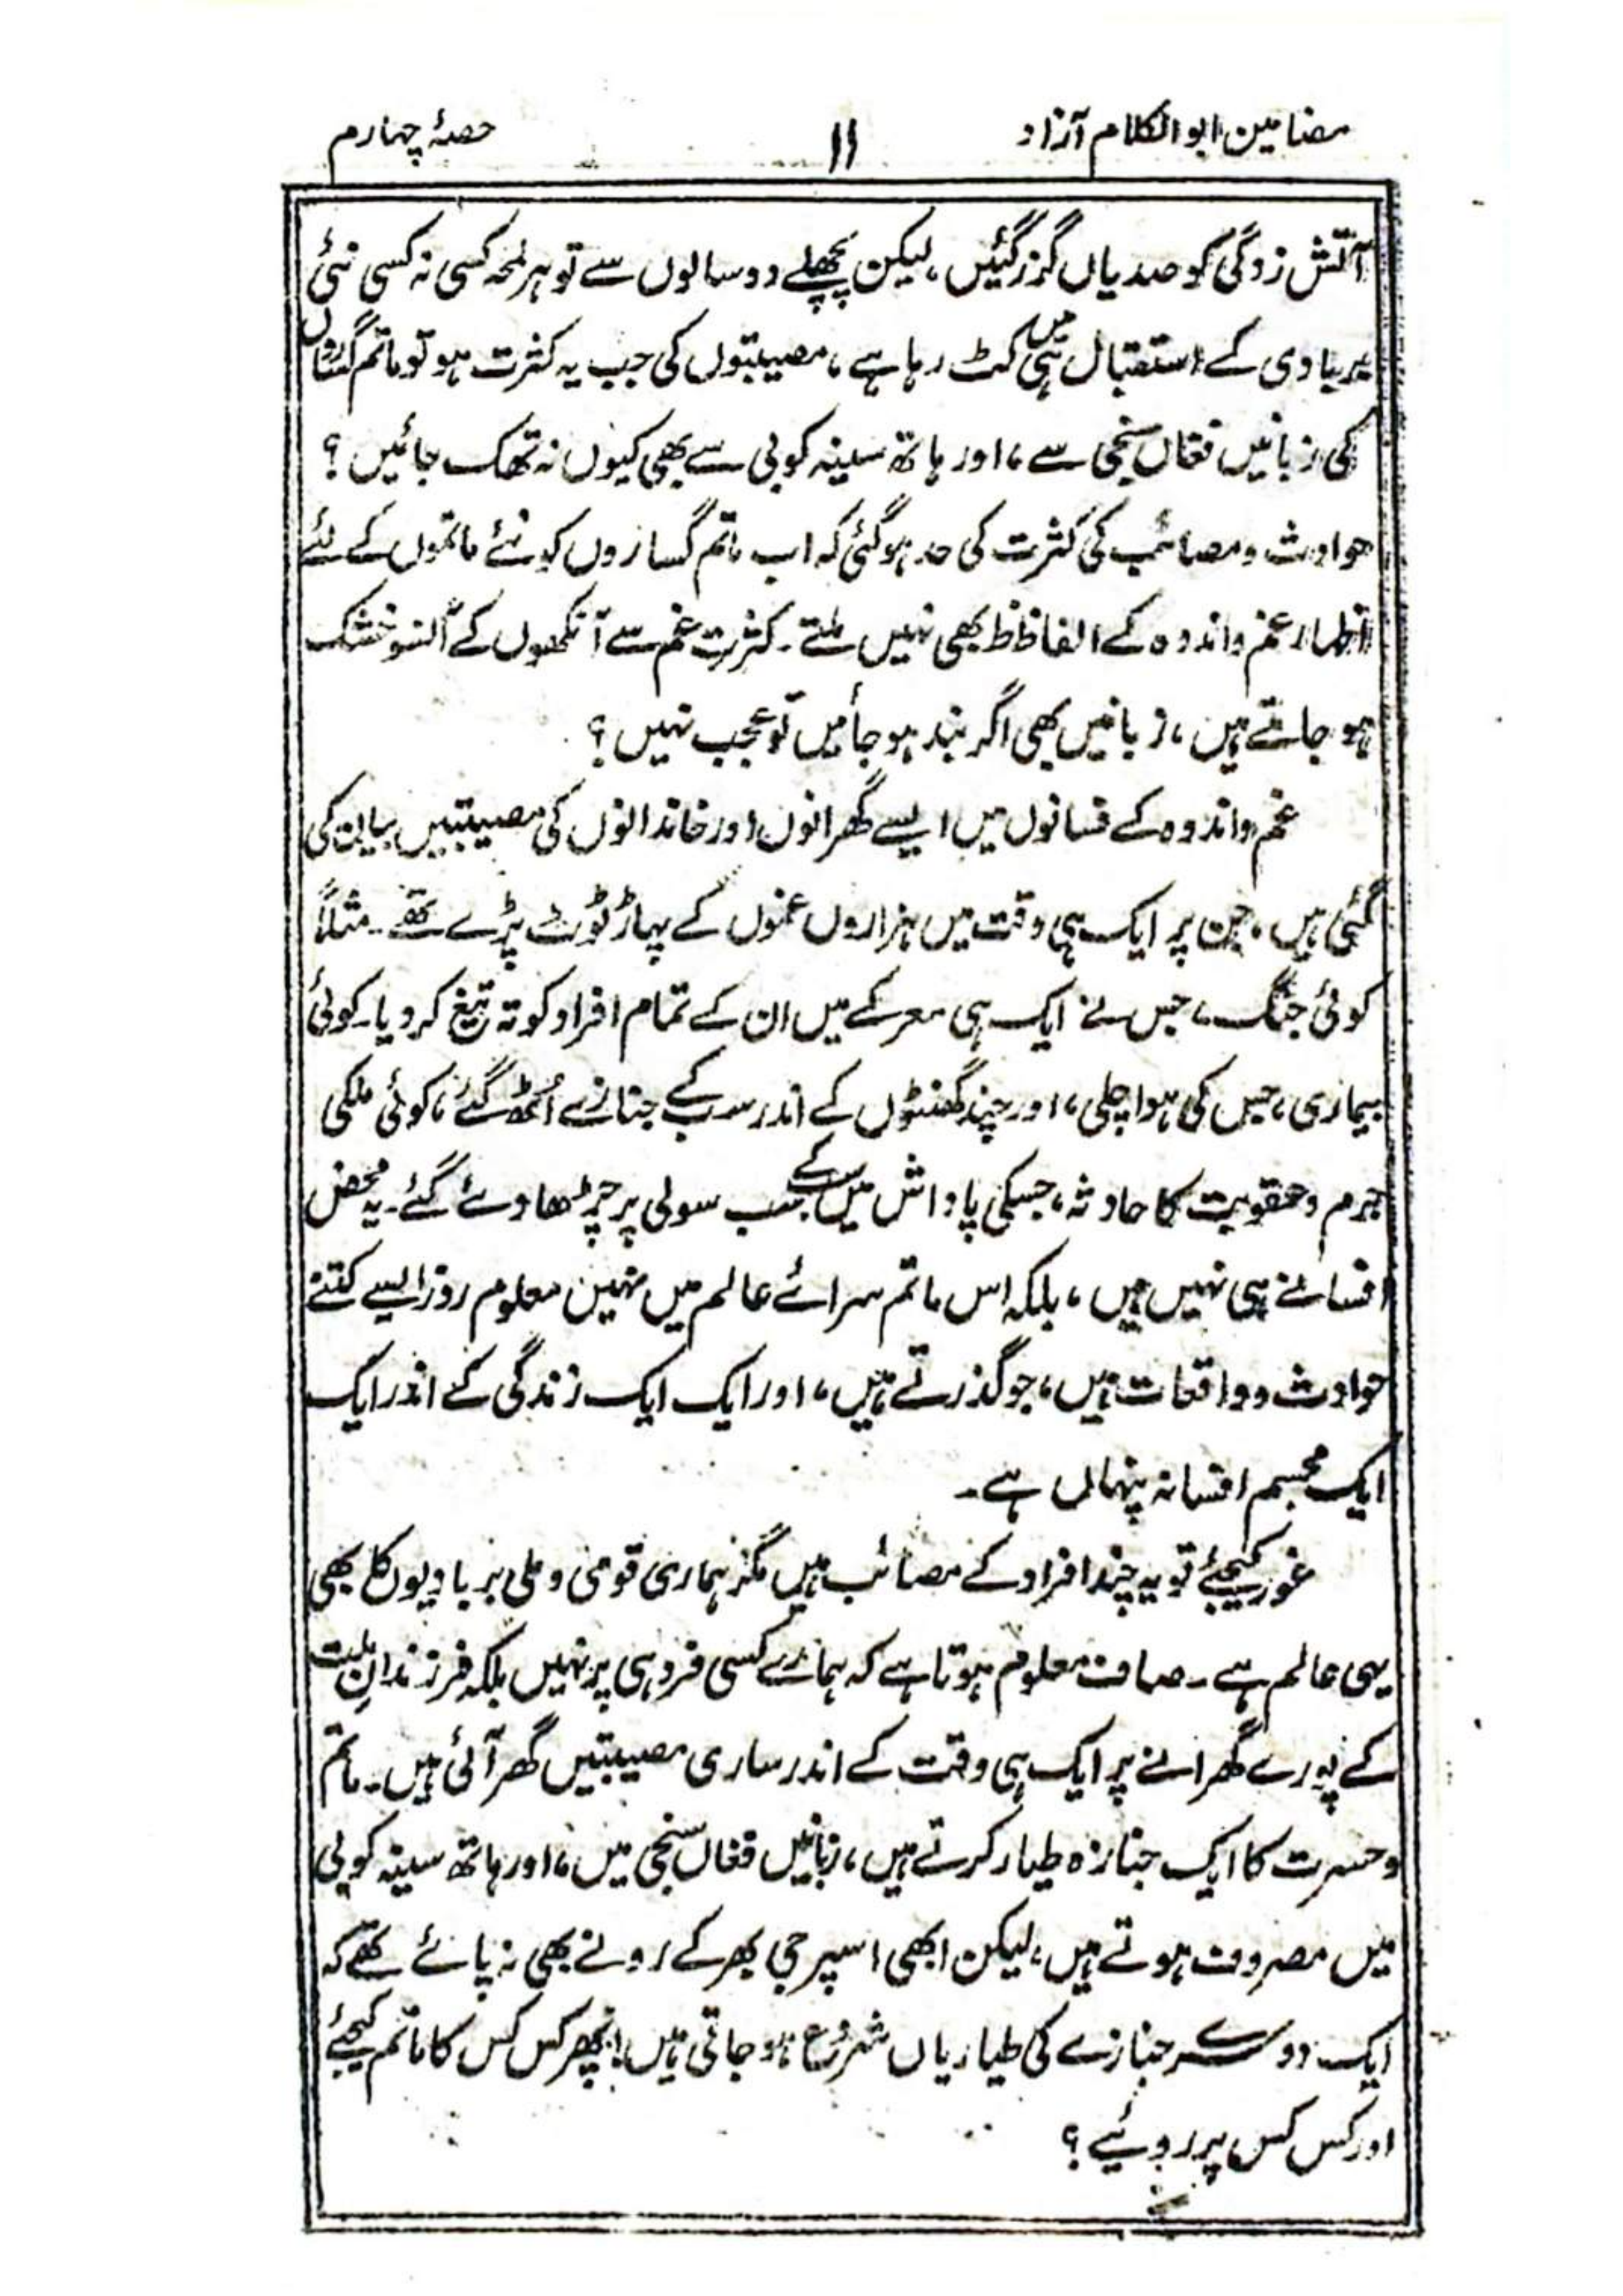 مضامین ابوالکلام آزاد
۱۱
حصۂ چہارم
آتش زدگی کو صدیاں گزر گئیں، لیکن پچھلے دو سالوں سے تو ہر لمحہ کسی نہ کسی نئی
بربادی کے استقبال ہی میں کٹ رہا ہے، مصیبتوں کی جب یہ کثرت ہو تو ماتم گساروں
کی زبانیں فغاں سنجی سے، اور ہاتھ سینہ کوبی سے بھی کیوں نہ تھک جائیں؟
حوادث و مصائب کی کثرت کی حد ہوگئی کہ اب ماتم گساروں کو نئے ماتموں کے لئے
اظہار غم و اندوہ کے الفاظ بھی نہیں ملتے۔ کثرت غم سے آنکھوں کے آنسو خشک
ہو جاتے ہیں، زبانیں بھی اگر بند ہو جائیں تو عجب نہیں؟
غم و اندوہ کے فسانوں میں ایسے گھرانوں اور خاندانوں کی مصیبتیں بیان کی
گئی ہیں، جن پر ایک ہی وقت میں ہزاروں غموں کے پہاڑ ٹوٹ پڑے تھے۔ مثلاً
کوئی جنگ، جس نے ایک ہی معرکے میں ان کے تمام افراد کو تہ تیغ کر دیا۔ کوئی
بیماری، جس کی ہوا چلی، اور چند گھنٹوں کے اندر سب کے جنازے اُٹھ گئے، کوئی ملکی
جرم و عقوبت کا حادثہ، جسکی پاداش میں سب کے سب سولی پر چڑھا دئے گئے۔ یہ محض
افسانے ہی نہیں ہیں، بلکہ اس ماتم سرائے عالم میں نہیں معلوم روز ایسے کتنے
حوادث و واقعات ہیں، جو گذرتے ہیں، اور ایک ایک زندگی کے اندر ایک
ایک مجسم افسانہ پنہاں ہے۔
غور کیجئے تو یہ چند افراد کے مصائب ہیں مگر ہماری قومی و ملی بربادیوں کا بھی
یہی عالم ہے۔ صاف معلوم ہوتا ہے کہ ہمارے کسی فرد ہی پر نہیں بلکہ فرزندانِ ملت
کے پورے گھرانے پر ایک ہی وقت کے اندر ساری مصیبتیں گھر آئی ہیں۔ ماتم
و حسرت کا ایک جنازہ طیار کرتے ہیں، زبانیں فغاں سنجی میں، اور ہاتھ سینہ کوبی
میں مصروف ہوتے ہیں، لیکن ابھی اسپر جی بھر کے رونے بھی نہ پائے تھے کہ
ایک دوسرے جنازے کی طیاریاں شروع ہو جاتی ہیں! پھر کس کس کا ماتم کیجئے
اور کس کس پر روئیے؟